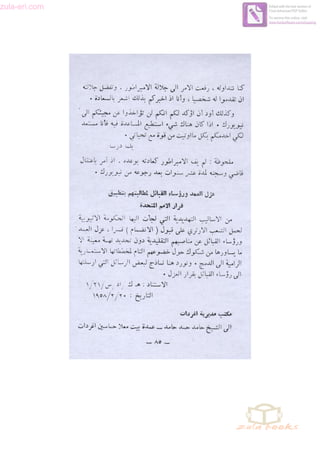 zula-eri.com
كنا نتداوله ، رفعت الامر الى جلالة الامبراطور . وتفضل جلالته
ان تقدموا له شخصيا ، وأنا اذ أخبركم بذلك أشعر بالسعادة ٠
وكذلك أود أن أؤكد لكم انكم لن تؤاخذوا عن مجيئكم الى
نيويورك ٠ اذا كان هناك شيء أستطيع المساعدة فيه فأنا مستعد
لكي أخدمكم بكل ما أوتيت من قوة مع تحياتي ٠
ملحوظة : لم يف الامبراطور كعادته بوعده ، اذ أمر بإعتقال
قاضي وسجنه لمدة عشر سنوات بعد رجوعه من نيويورك ٠
عزل العمد ورؤساء القبائل لمطالبتهم بتطبيق
قرار الامم المتحدة
من الاساليب التهديدية التي لجأت اليها الحكومة الاثيوبية
لحمل الشعب الارتري على قبول ( الانضمام ) قسرا ، عزل العمد
ورؤساء القبائل عن مناصبهم التقليدية دون تحديد تهمة معينة الا
ما يساورها من شكوك حول خضوعهم التام لمخططاتها الاستعمارية
الرامية الى الدمج ٠ ونورد هنا نماذج لبعض الرسائل التي أرسلتها
الى رؤساء القبائل بقرار العزل ٠
التاريخ : ١٩٥٨/٢/٢٠
مكتب مديرية اغردات
الى الشيخ حامد حمد حامد ــ عمدة بيت معلا اغردات
ــ ٨٥ ــ
zula books